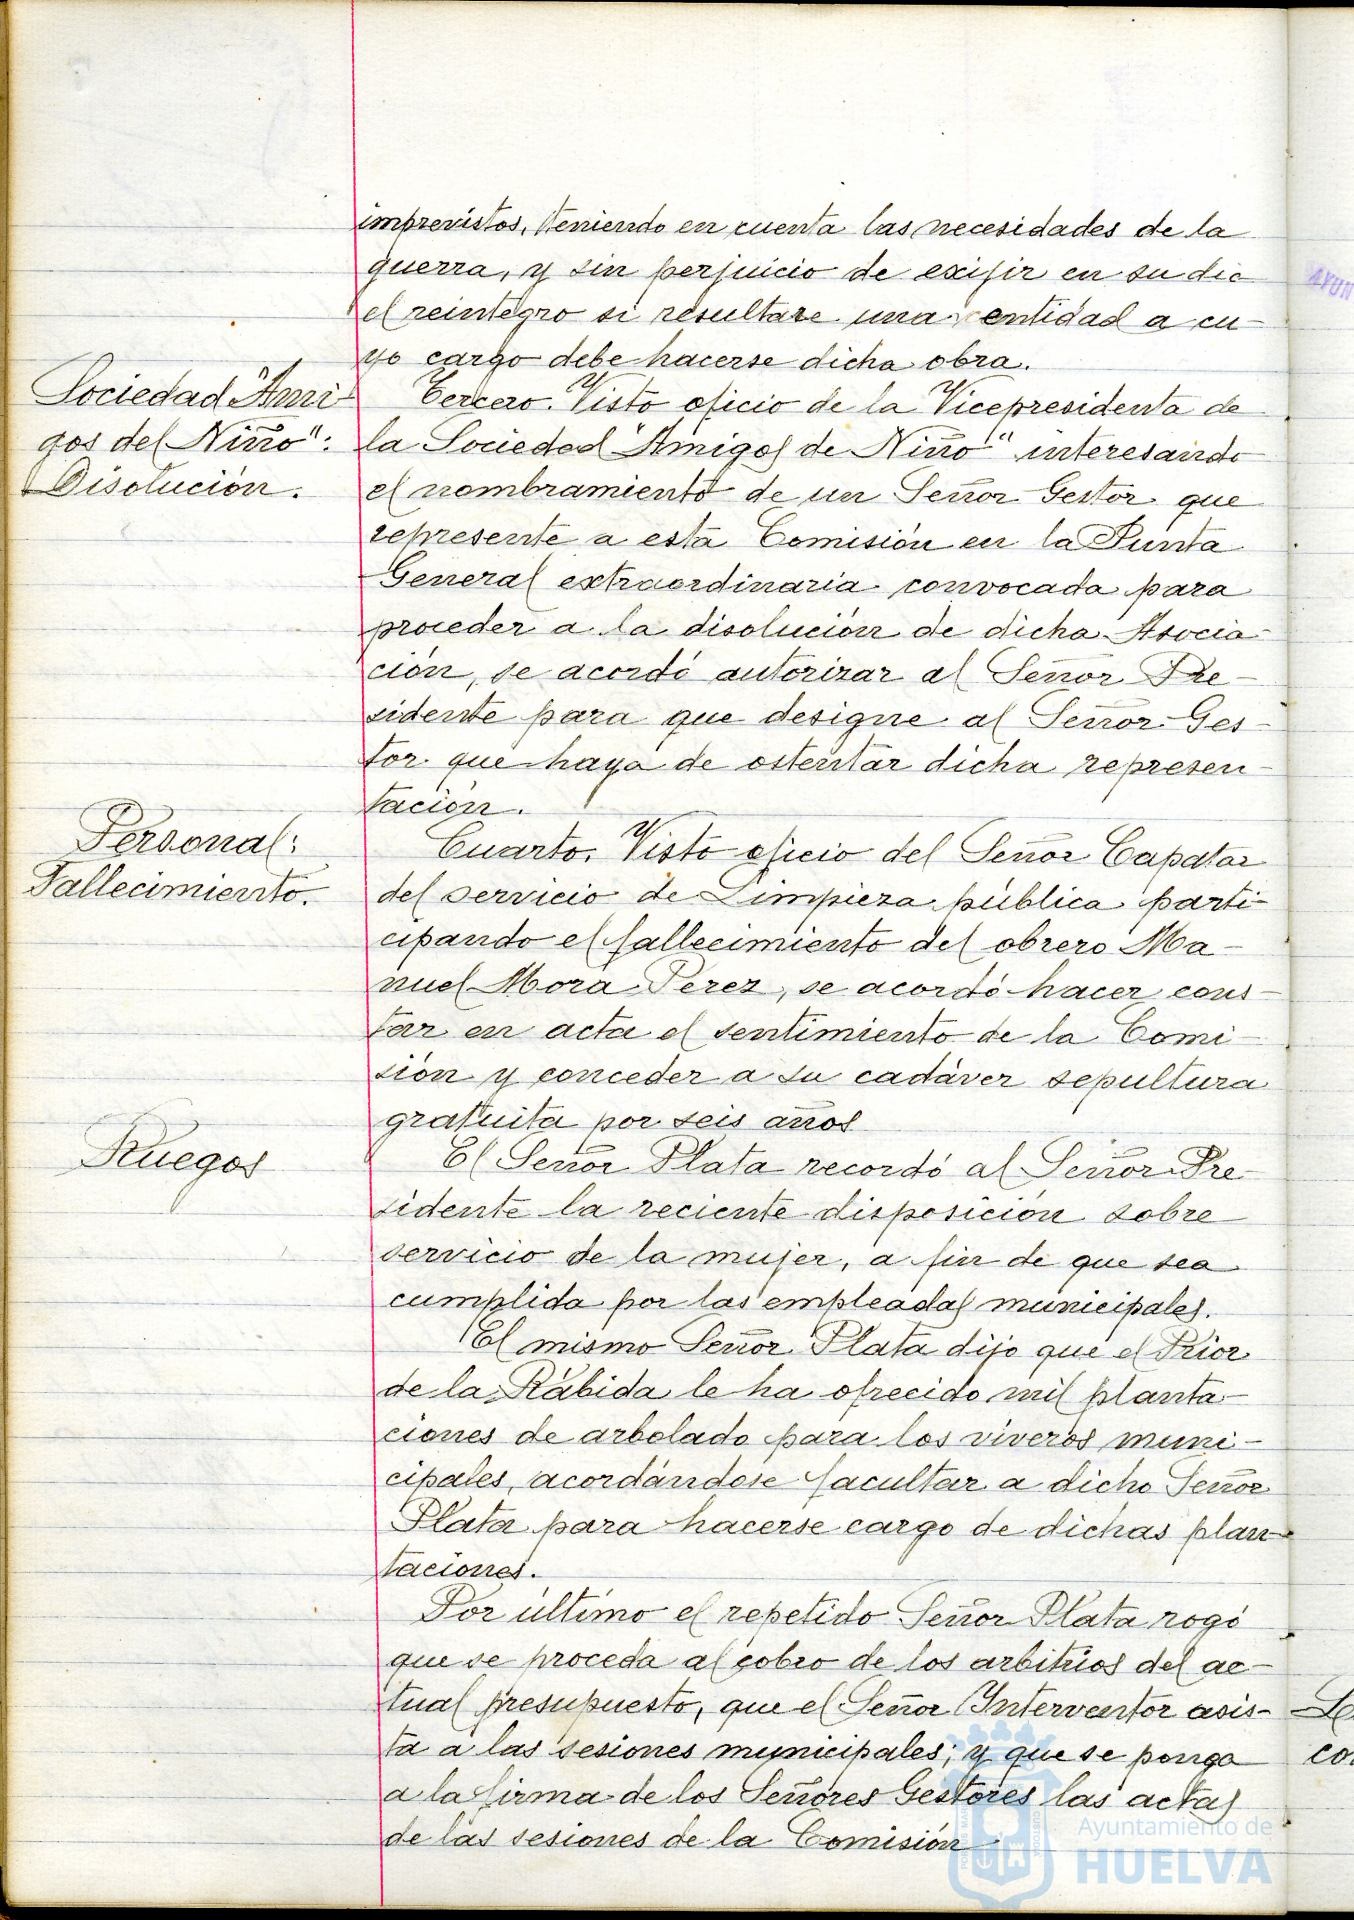 imprevistos, teniendo en cuenta las necesidades de la
guerra, y sin perjuicio de exijir en su dia
el reintegro si resultare una entidad a cu-
yo cargo debe hacerse dicha obra.
Sociedad "Ami-
gos del Niño":
Disolución.
Tercero. Visto oficio de la Vicepresidenta de
la Sociedad "Amigos de Niño" interesando
el nombramiento de un Señor Gestor que
represente a esta Comisión en la Junta
General extraordinaria convocada para
proceder a la disolución de dicha Asocia-
ción, se acordó autorizar al Señor Pre-
sidente para que designe al Señor Ges-
tor que haya de ostentar dicha represen-
tación.
Personal:
Fallecimiento.
Cuarto. Visto oficio del Señor Capataz
del servicio de Limpieza pública parti-
cipando el fallecimiento del obrero Ma-
nuel Mora Perez, se acordó hacer cons-
tar en acta el sentimiento de la Comi-
sión y conceder a su cadáver sepultura
gratuita por seis años
Ruegos
El Señor Plata recordó al Señor Pre-
sidente la reciente disposición sobre
servicio de la mujer, a fin de que sea
cumplida por las empleadas municipales.
El mismo Señor Plata dijo que el Prior
de la Rábida le ha ofrecido mil planta-
ciones de arbolado para los viveros muni-
cipales, acordándose facultar a dicho Señor
Plata para hacerse cargo de dichas plan-
taciones.
Por último el repetido Señor Plata rogó
que se proceda al cobro de los arbitrios del ac-
tual presupuesto, que el Señor Interventor asis-
ta a las sesiones municipales; y que se ponga
a la firma de los Señores Gestores las actas
de las sesiones de la Comisión
Ayuntamiento de
HUELVA
AYUN
co.